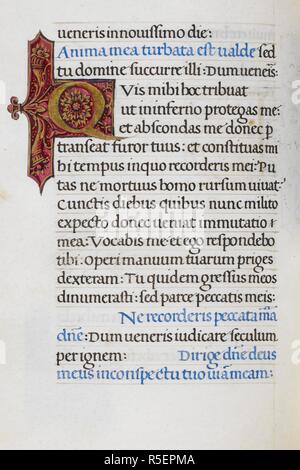 ueneris in nouissimo die:
Anima mea turbata est ualde sed
tu domine succurre illi: Dum ueneris:
Quis mihi hoc tribuat
ut in inferno protegas me:
et abscondas me donec p
transeat furor tuus: et constituas mi
hi tempus in quo recorderis mei: Pu
tas ne mortuus homo rursum uiuat:
Cunctis diebus quibus nunc milito
expecto donec ueniat immutatio
mea: Vocabis me et ego respondebo
tibi: Operi manuum tuarum priges
dexteram: Tu quidem gressus meos
dinumerasti: sed parce peccatis meis:
Ne recorderis peccata m̃a
dñe: Dum ueneris iudicare seculum
per ignem: Dirige dñe deus
meus in conspectu tuo uiam meam:
alamy
Image ID: R5EPMA
www.alamy.com